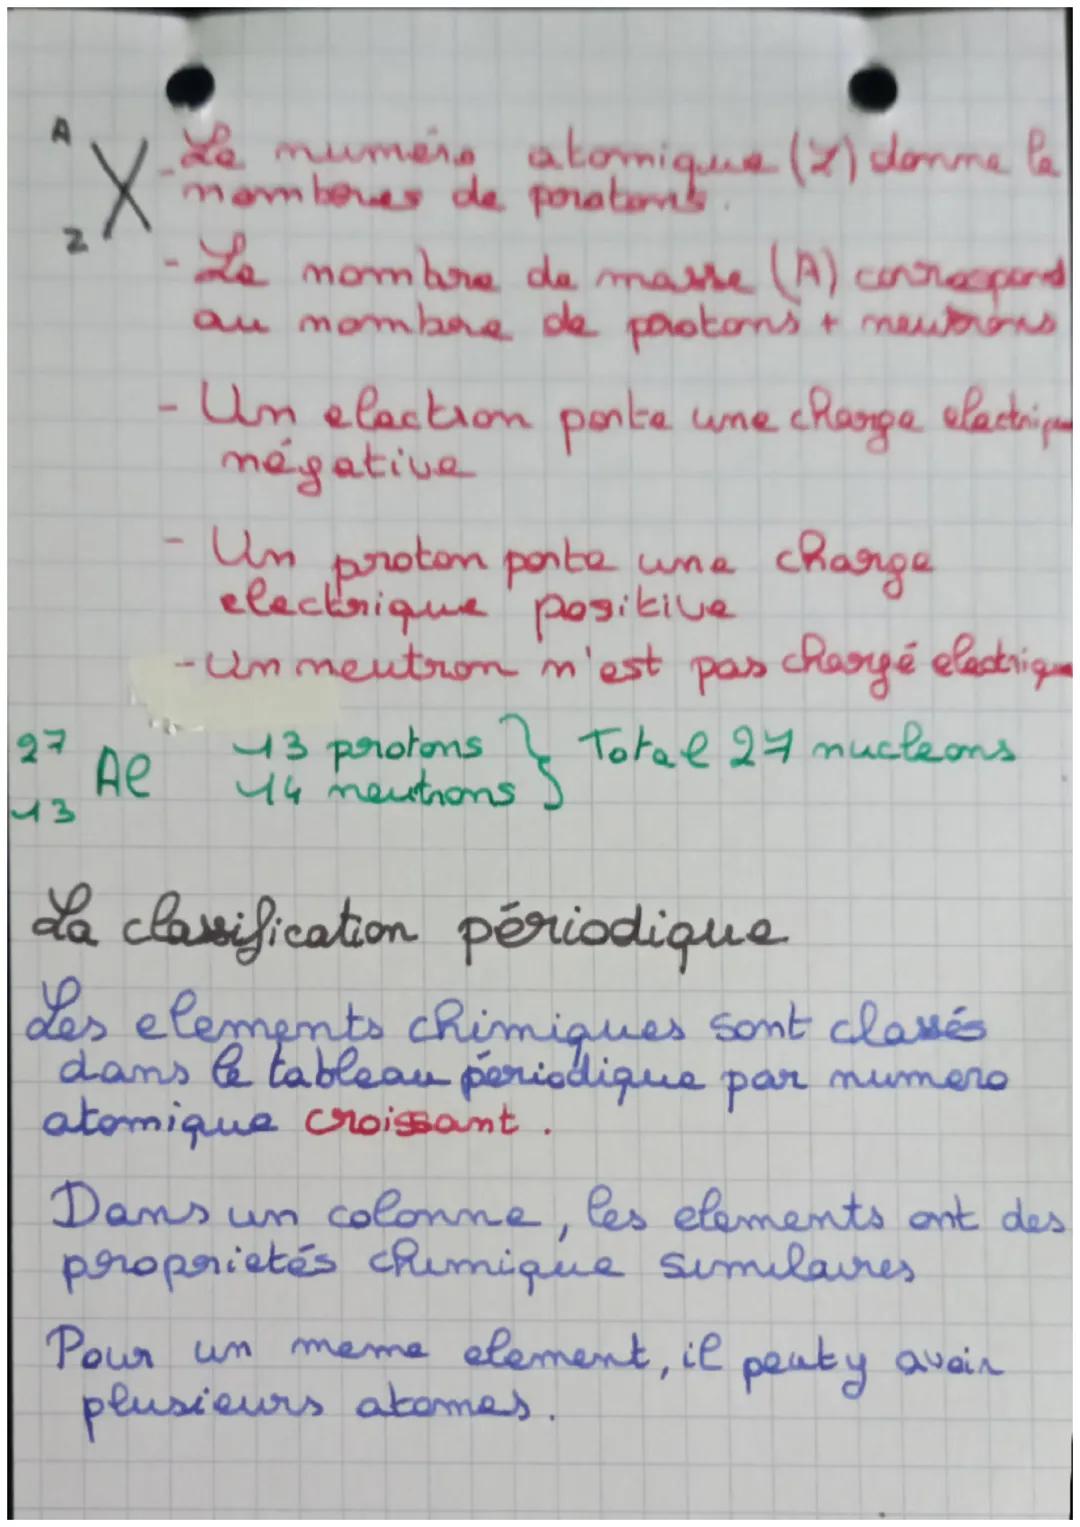 A
X
Z
- Le numéro atomique (Z) donne le
nomberes de poratons.
- Le nombre de masse (A) correspond
au nombere de protons + neutrons
- Un electron porte une charge electrique
négative
- Un proton porte une charge
electrique positive
- Un neutron n'est pas chargé electrique
27
13 Al 13 protons } Total 27 nucleons
14 neutrons
La classification périodique
Les elements chimiques sont classés
dans le tableau périodique par numero
atomique croissant.
Dans un colonne, les elements ont des
proprietés chimique similaires
Pour un meme element, il peuty avoir
plusieurs atomes.